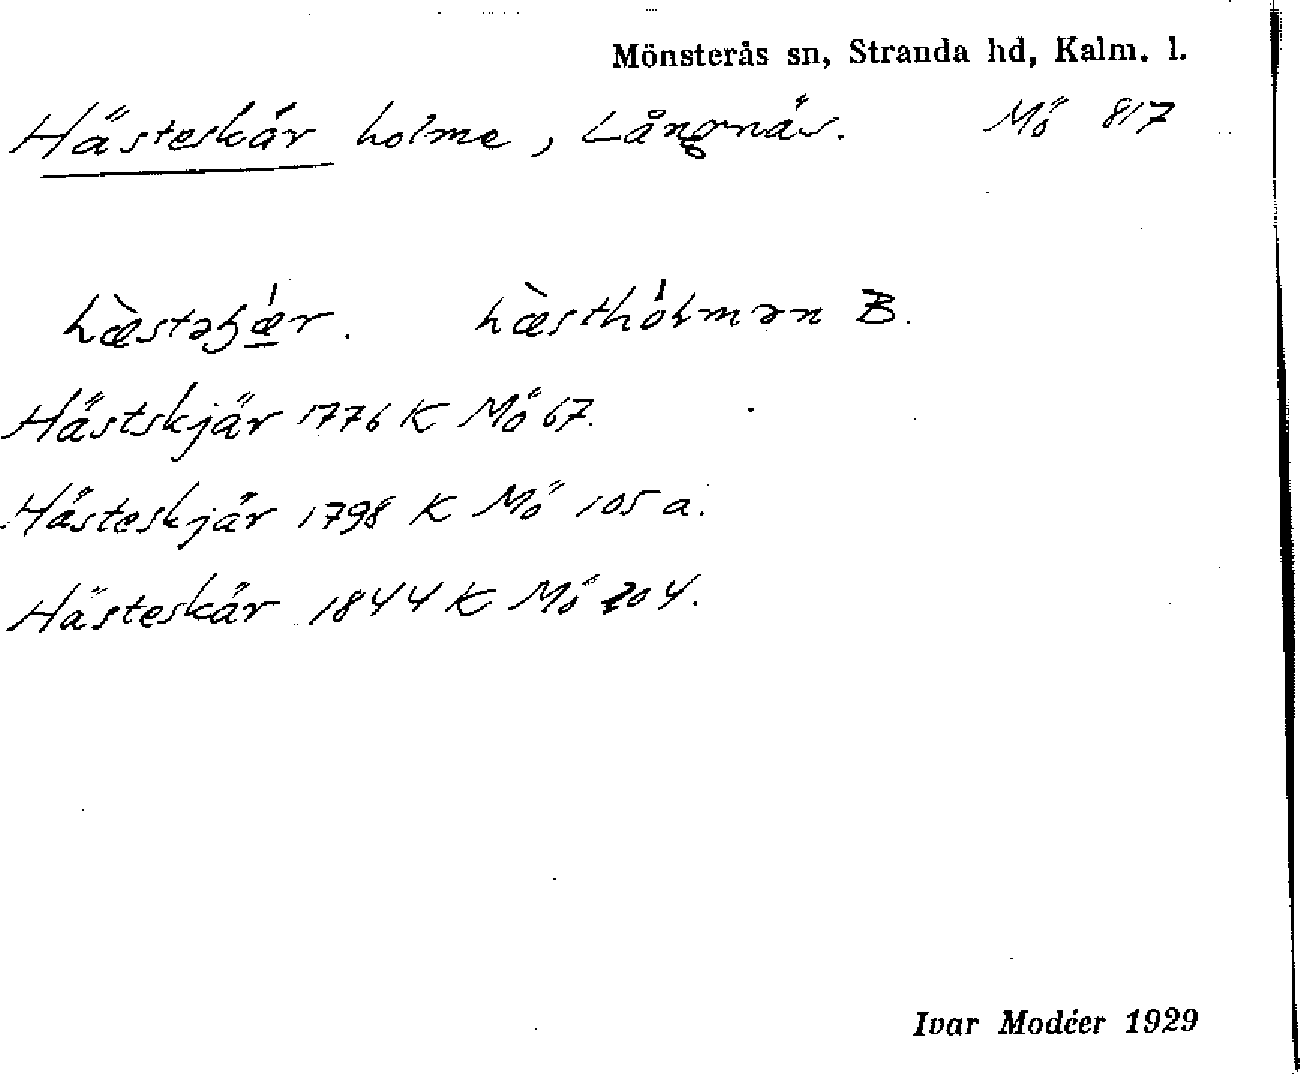 Mönsterås sn, Stranda hd, Kalm. l.
Hästeskär holme, Långnäs. Mö 817
hæ̀stəʃǽr. hæ̀sthóɫmən B.
Hästskjär 1776 K Mö 67.
Hästeskjär 1798 K Mö 105 a.
Hästeskär 1844 K Mö 204.
Ivar Modéer 1929